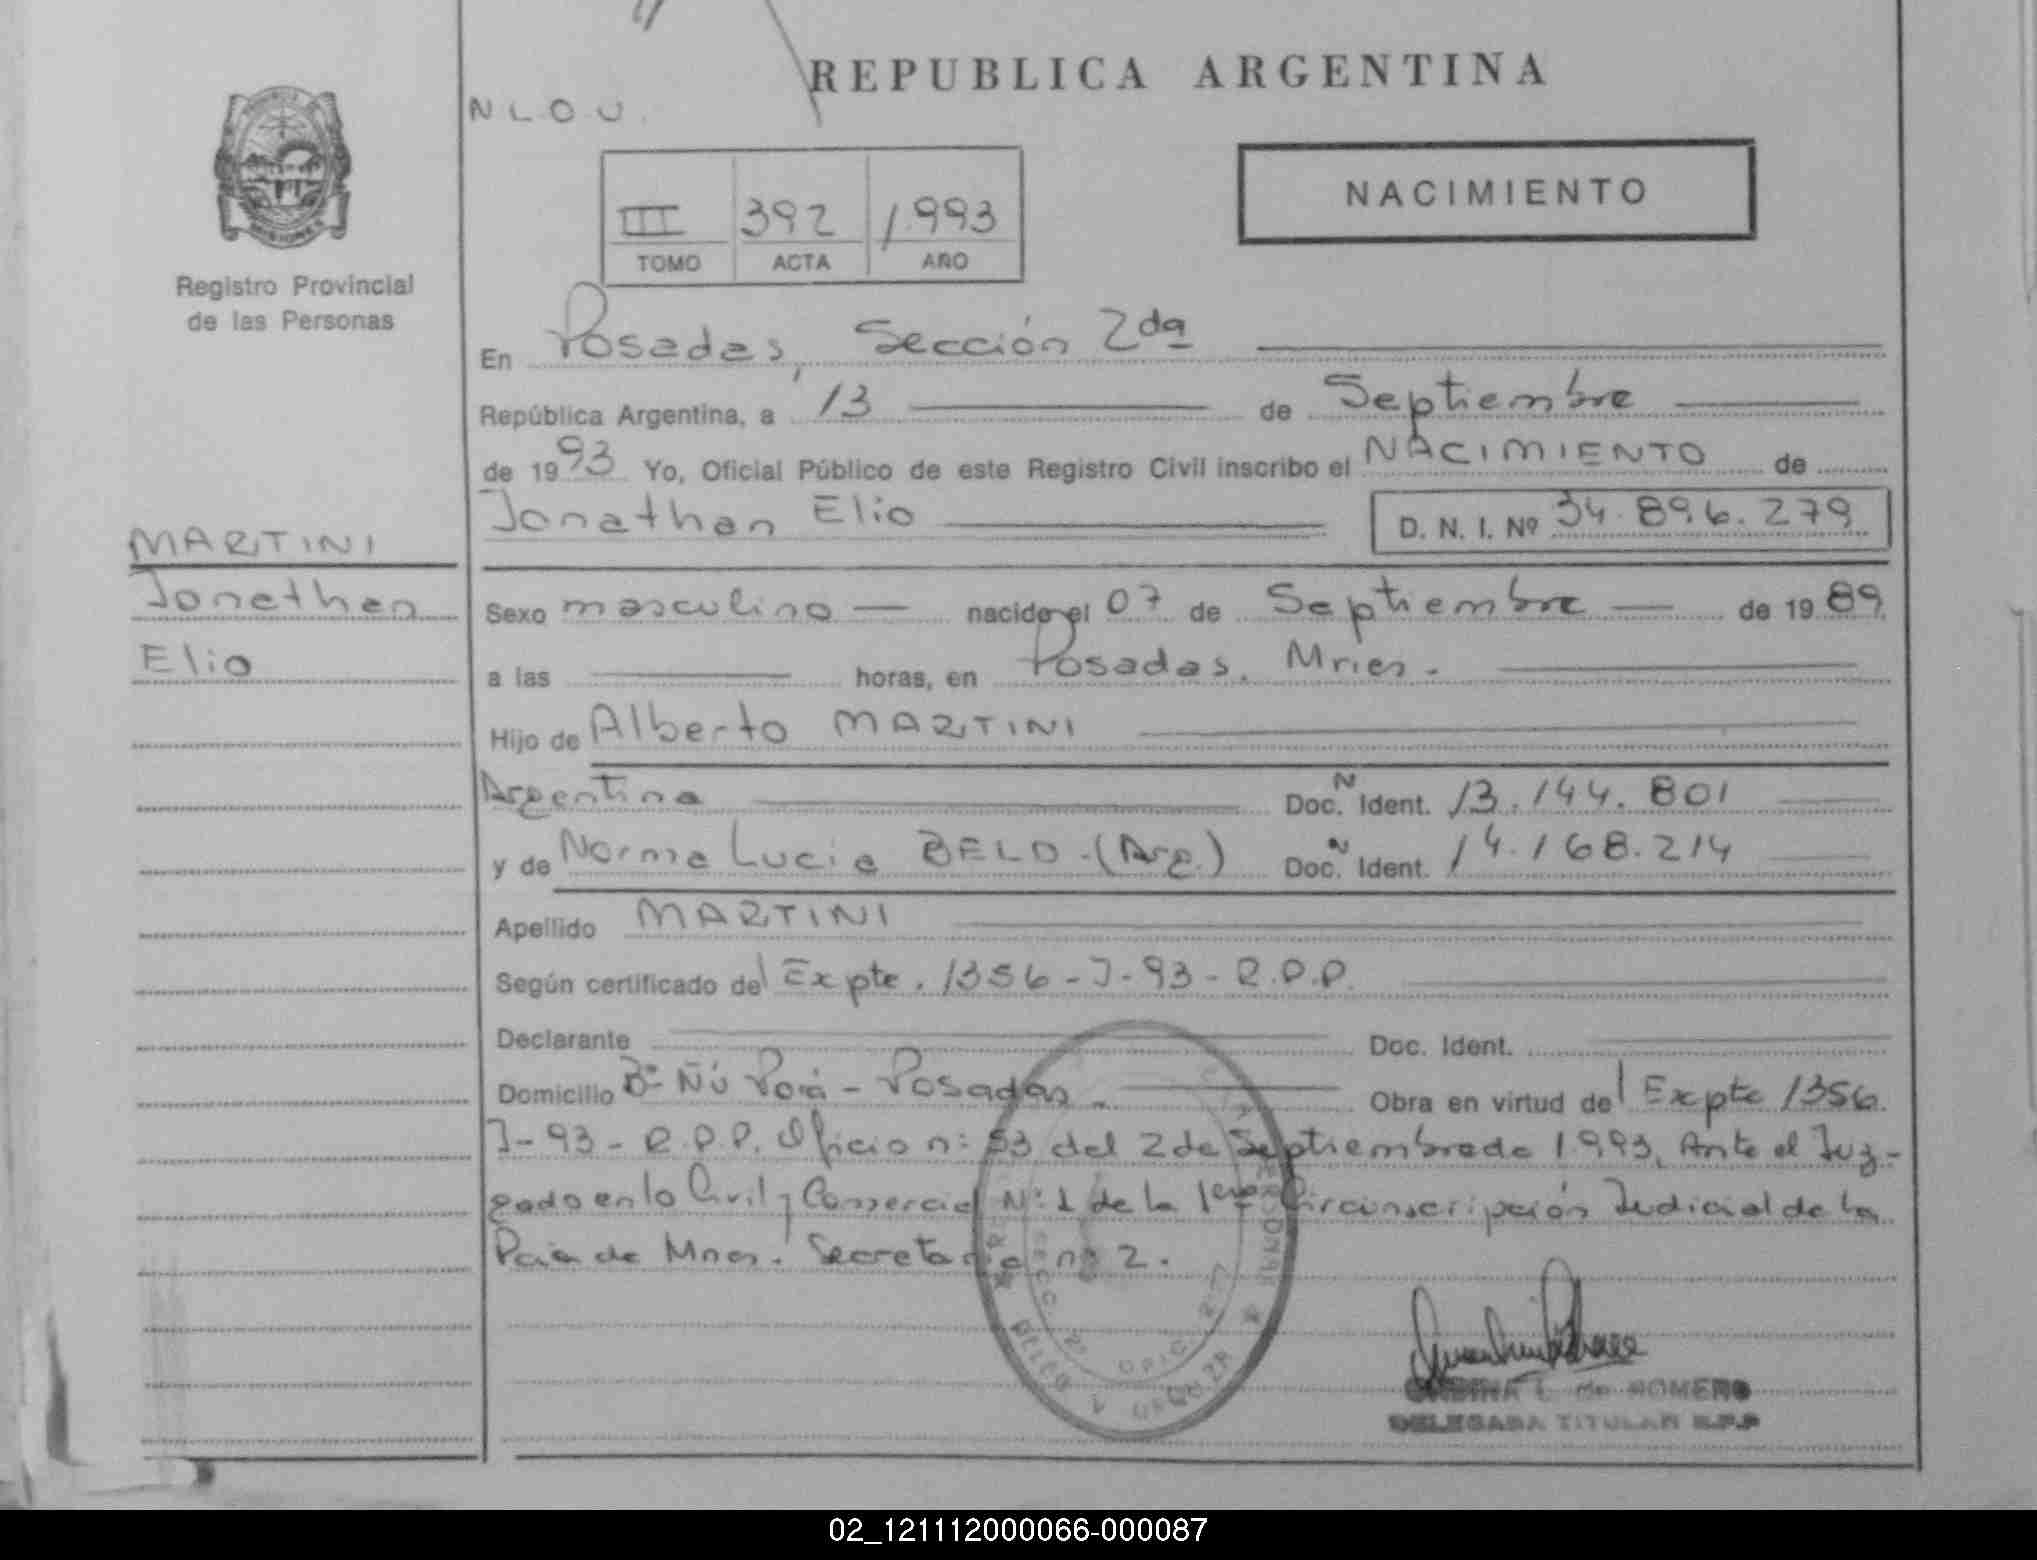 REPUBLICA ARGENTINA
N L O U.
NACIMIENTO
III 392 1.993
TOMO ACTA AÑO
Registro Provincial
de las Personas
En Posadas, Sección 2da
República Argentina, a 13 de Septiembre
de 1993 Yo, Oficial Público de este Registro Civil inscribo el NACIMIENTO de
Jonathan Elio D. N. I. Nº 34.896.279
MARTINI
Jonathan
Elio
Sexo masculino nacido el 07 de Septiembre de 1989
a las horas, en Posadas, Mnes.
Hijo de Alberto MARTINI
Argentina Doc. N Ident. 13.144.801
y de Norma Lucia BELO.(Arg.) Doc. N Ident. 14.168.214
Apellido MARTINI
Según certificado del Expte. 1356-J-93-R.P.P.
Declarante Doc. Ident.
Domicilio Bº Ñú Porá - Posadas. Obra en virtud del Expte 1356
J-93-R.P.P. Oficio nº 53 del 2 de Septiembre de 1.993, Ante el Juz-
gado en lo Civil y Comercial Nº 1 de la 1era Circunscripción Judicial de la
Pcia de Mnes. Secretaria nº 2.
SECC. 2ª OFIC.
ROMERO
DELEGADA TITULAR R.P.P
02_121112000066-000087